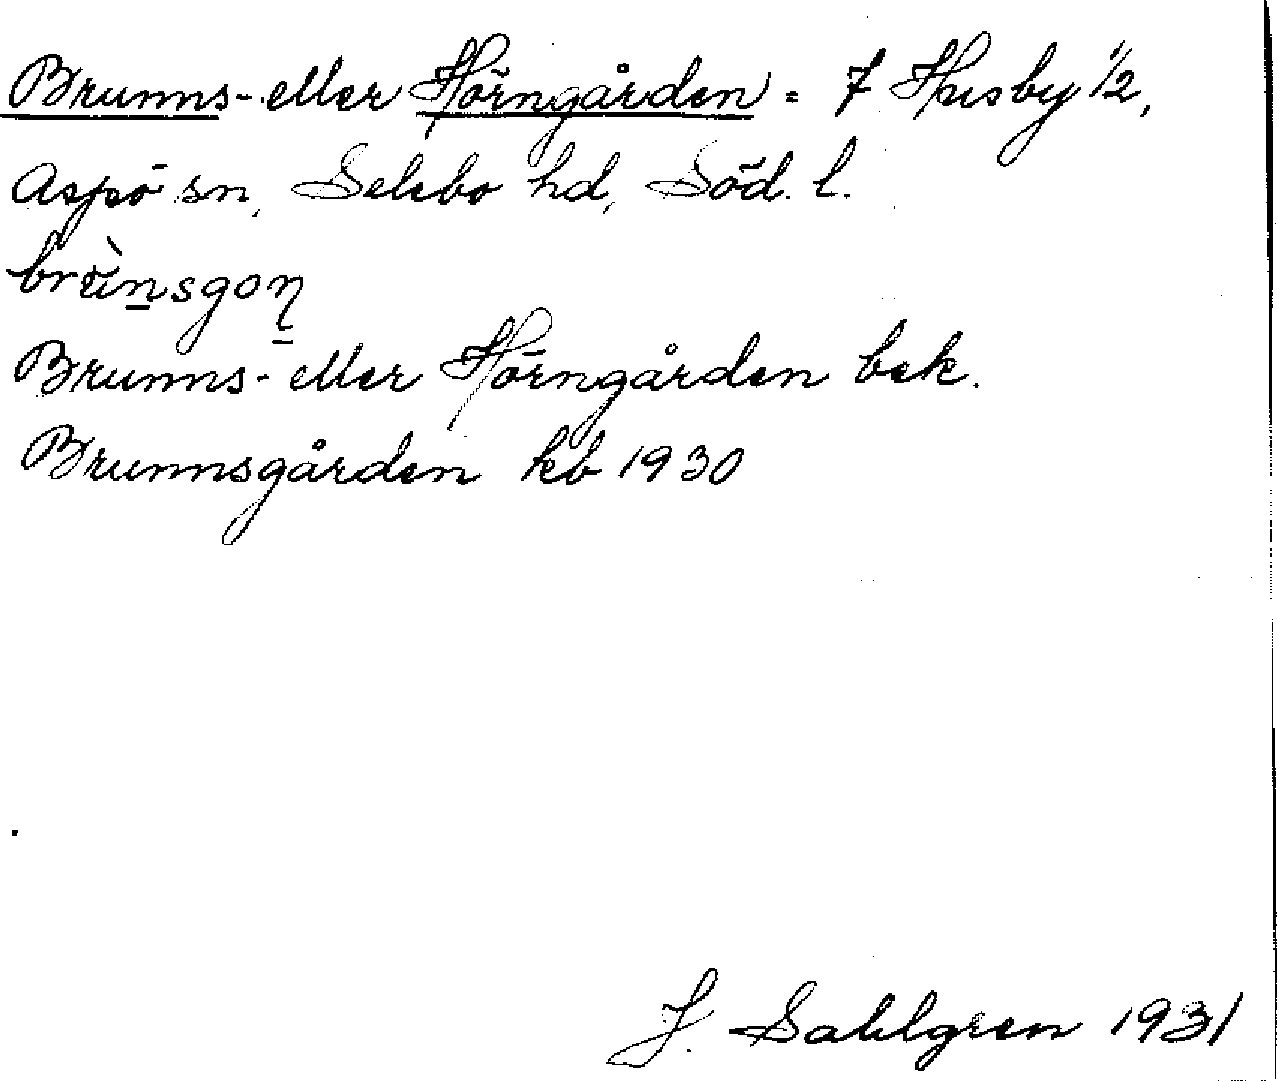 Brunns- eller Hörngården = 7 Husby 1/2,
Aspö sn, Selebo hd, Söd. l.
brùnsgoɳ
Brunns- eller Hörngården bek.
Brunnsgården kb 1930
J. Sahlgren 1931